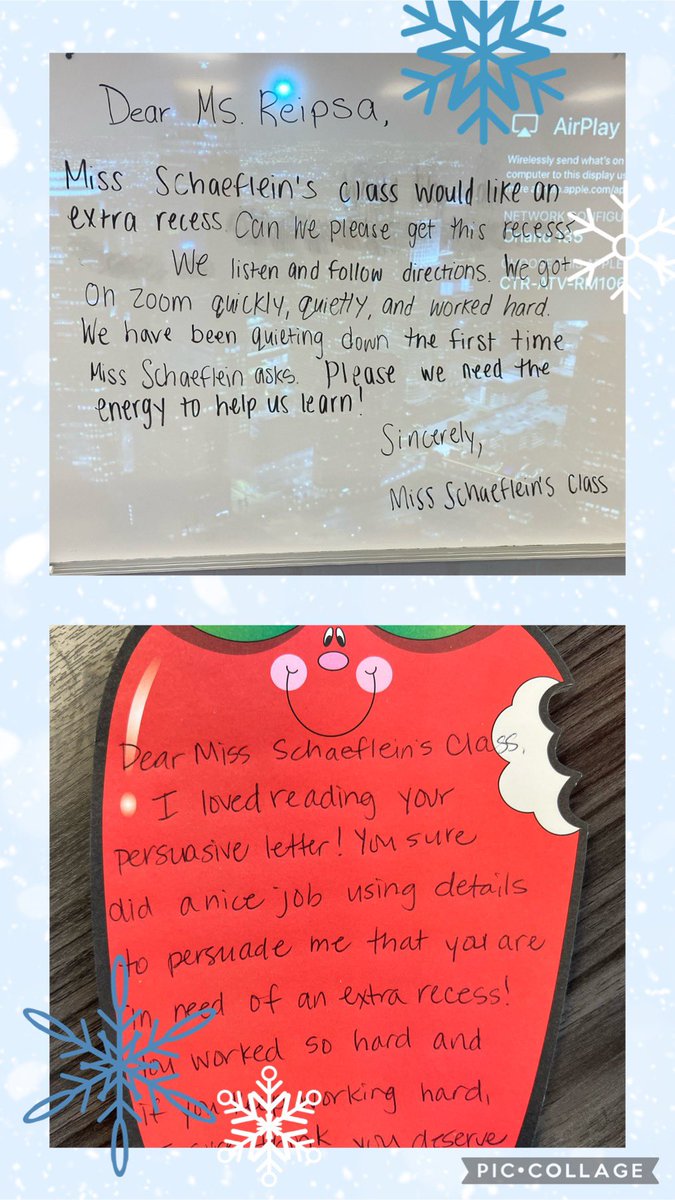 Dear Ms. Reipsa,
Miss Schaeflein's class would like an
extra recess. Can we please get this recess?
We listen and follow directions. We got
on zoom quickly, quietly, and worked hard.
We have been quieting down the first time
Miss Schaeflein asks. Please we need the
energy to help us learn!
Sincerely,
Miss Schaeflein's Class
AirPlay
Wirelessly send what's on
computer to this display us
apple.com/ap
NETWORK
CTR-JTV-RM106
Dear Miss Schaeflein's Class,
I loved reading your
persuasive letter! You sure
did a nice job using details
to persuade me that you are
in need of an extra recess!
you worked so hard and
if working hard,
you deserve
PIC•COLLAGE